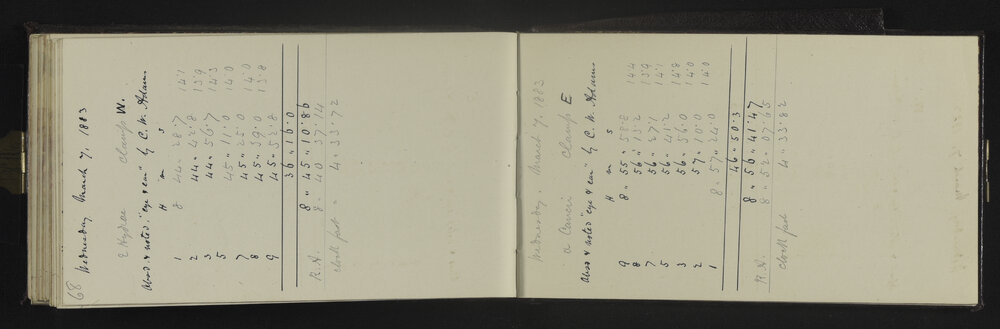 68
Wednesday March 7, 1883
ε Hydrae clamp W.
Obsd & noted "eye & ear" by C. W. Adams
H m s
1 8 44 " 28.7 14.1
2 44 " 42.8 13.9
3 44 " 56.7 14.3
5 45 " 11.0 14.0
7 45 " 25.0 14.0
8 45 " 39.0 13.8
9 45 " 52.8
36 " 16.0
8 " 45 " 10.86
R.A. 8 " 40 37.14
clock fast = 4 " 33.72
Wednesday. March 7, 1883
α Cancri clamp E.
Obsd & noted "eye & ear" by C. W. Adams
H m s
9 8 " 55 " 58.8 14.4
8 56 " 13.2 13.9
7 56 " 27.1 14.1
5 56 " 41.2 14.8
3 56 " 56.0 14.0
2 57 " 10.0 14.0
1 8 " 57 " 24.0
46 " 50.3
8 " 56 " 41.47
R.A. 8 " 52 " 07.65
clock fast 4 " 33.82